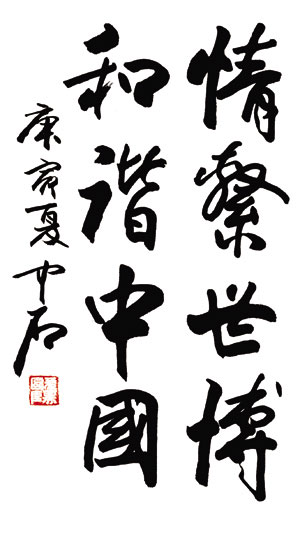 情繫世博
和諧中國
庚寅夏中石